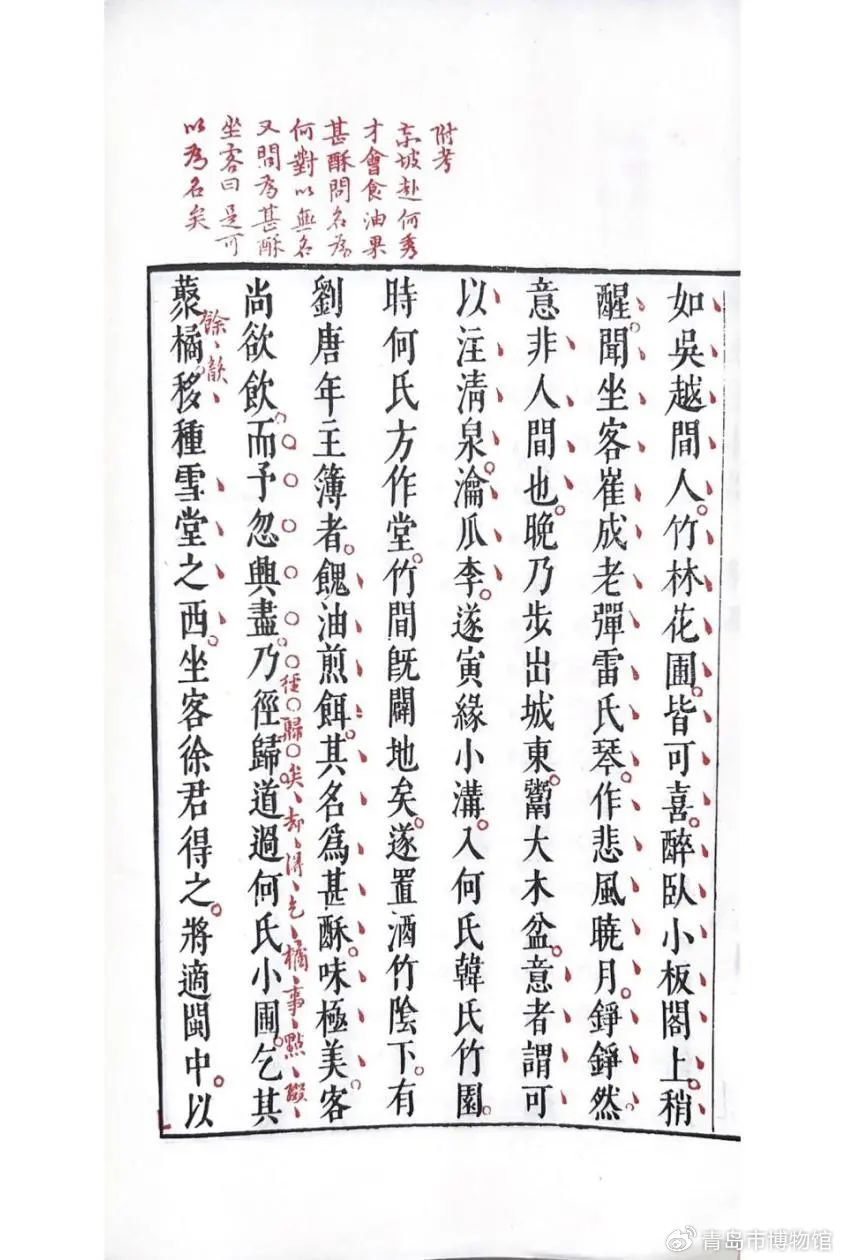 附考
東坡赴何秀
才會食油果
甚酥問名為
何對以無名
又問為甚酥
坐客曰是可
以為名矣
如吳越間人竹林花圃皆可喜醉臥小板閣上稍
醒聞坐客崔成老彈雷氏琴作悲風曉月錚錚然
意非人間也晚乃步出城東鬻大木盆意者謂可
以注清泉瀹瓜李遂夤緣小溝入何氏韓氏竹園
時何氏方作堂竹間既闢地矣遂置酒竹陰下有
劉唐年主簿者餽油煎餌其名為甚酥味極美客
尚欲飲而予忽興盡乃徑歸道過何氏小圃乞其
徑歸矣却得乞橘事點綴
藂橘移種雪堂之西坐客徐君得之將適閩中以
餘韻
青岛市博物馆